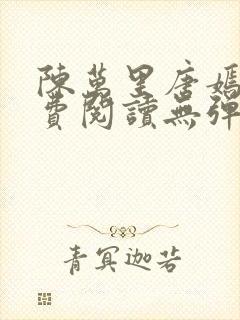 陳萬里唐嫣
費閱讀無彈
青冥迦若